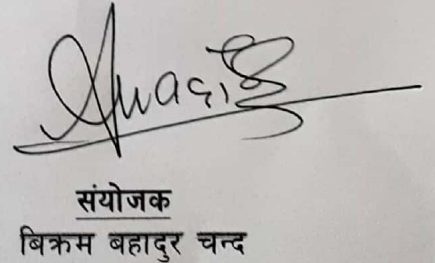 संयोजक
बिक्रम बहादुर चन्द